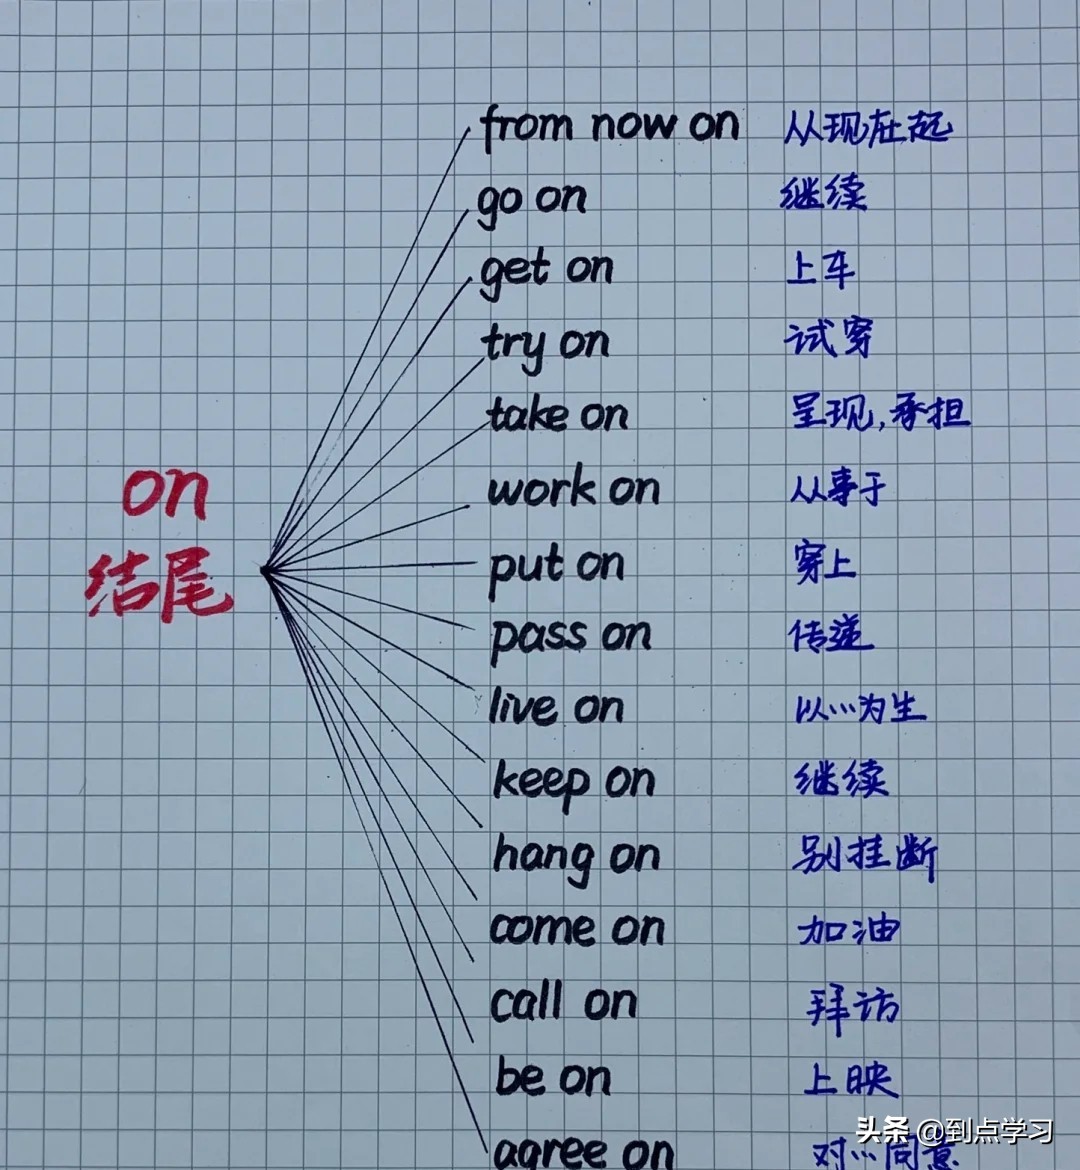 from now on 从现在起
go on 继续
get on 上车
try on 试穿
take on 呈现,承担
work on 从事于
on
结尾
put on 穿上
pass on 传递
live on 以…为生
keep on 继续
hang on 别挂断
come on 加油
call on 拜访
be on 上映
agree on 对…同意
头条 @到点学习